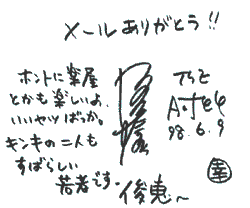 メールありがとう!!
ホントに楽屋
とかも楽しいよ、
いいヤツばっか。
キンキの二人も
すばらしい
若者です。
俊恵〜
98.6.9
幸